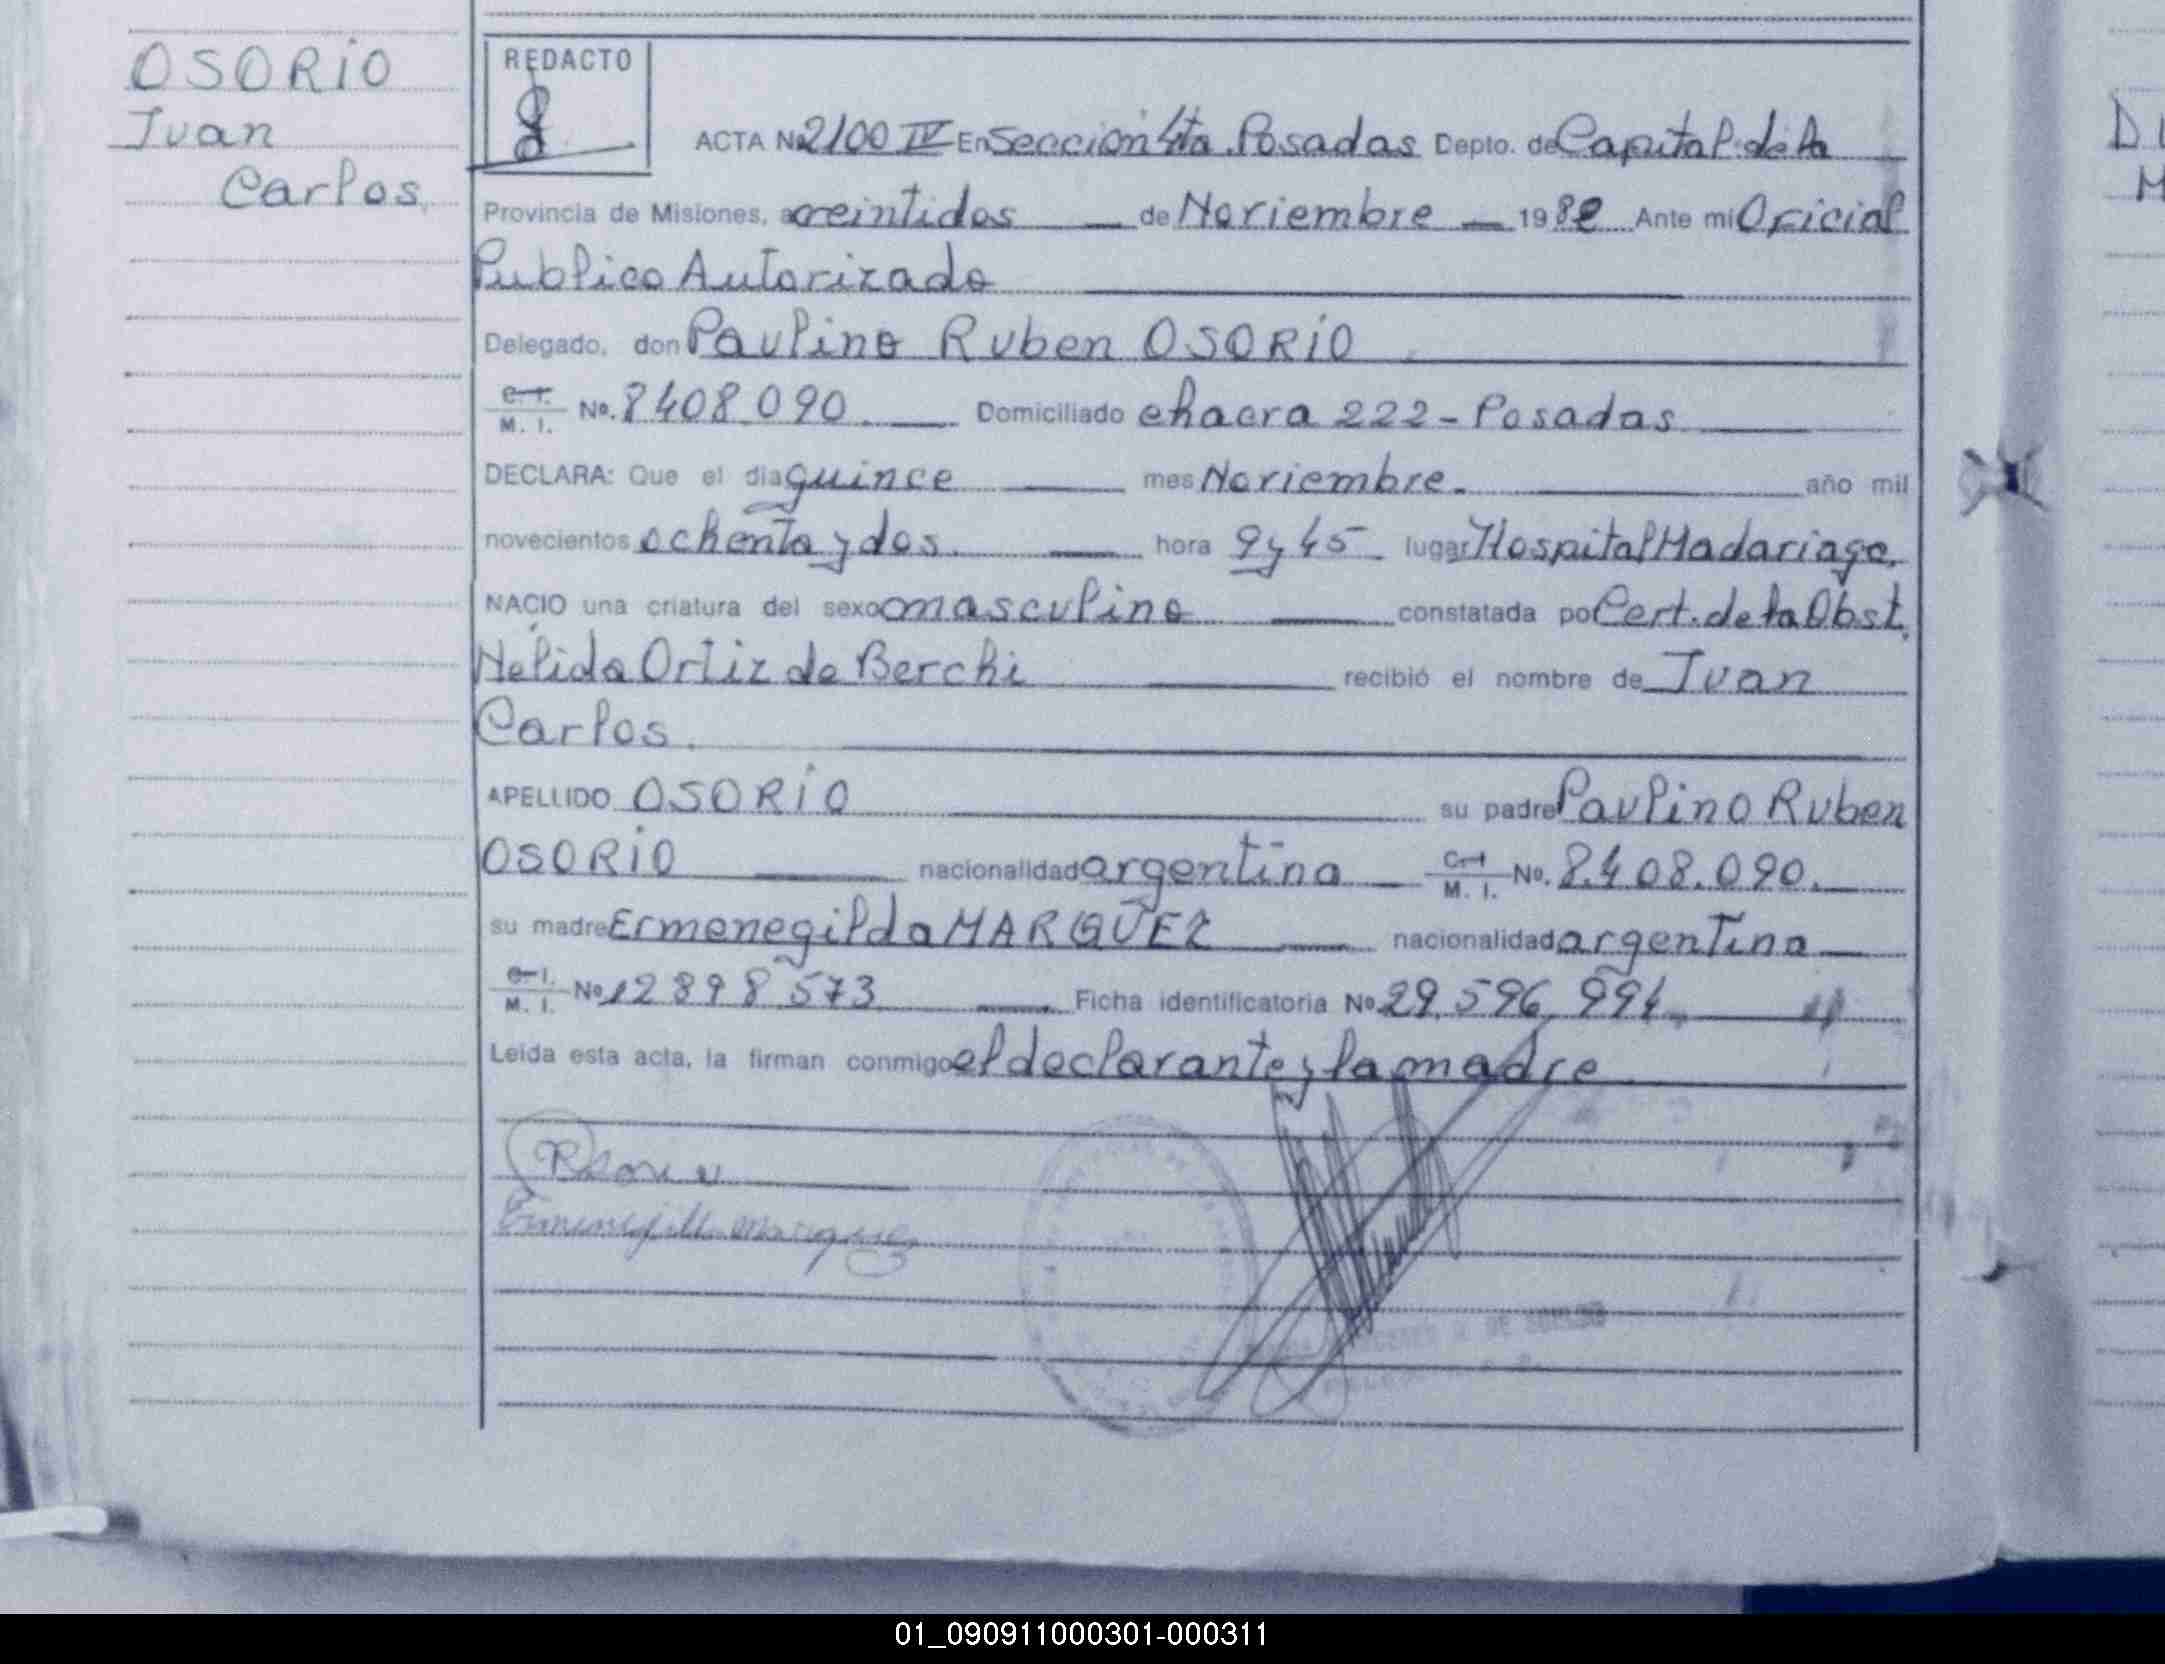 OSORIO
Juan
Carlos
REDACTO
ACTA No 2100 IV En Sección 4ta Posadas Depto. de Capital de la
Provincia de Misiones, a veintidos de Noviembre 1982 Ante mi Oficial
Publico Autorizado
Delegado, don Paulino Ruben OSORIO
C. I. M. I. No. 8408.090. Domiciliado chacra 222 - Posadas
DECLARA: Que el dia quince mes Noviembre. año mil
novecientos ochenta y dos. hora 9 y 45 lugar Hospital Madariaga.
NACIO una criatura del sexo masculino constatada po Cert. de la Obst.
Nelida Ortiz de Berchi recibió el nombre de Juan
Carlos.
APELLIDO OSORIO su padre Paulino Ruben
OSORIO nacionalidad argentina C. I. M. I. No. 8.408.090.
su madre Ermenegilda MARQUEZ nacionalidad argentina
C. I. M. I. No 12898573 Ficha identificatoria No 29.596.994.
Leida esta acta, la firman conmigo el declarante y la madre
Ermenegilda Marquez
DU
M
01_090911000301-000311